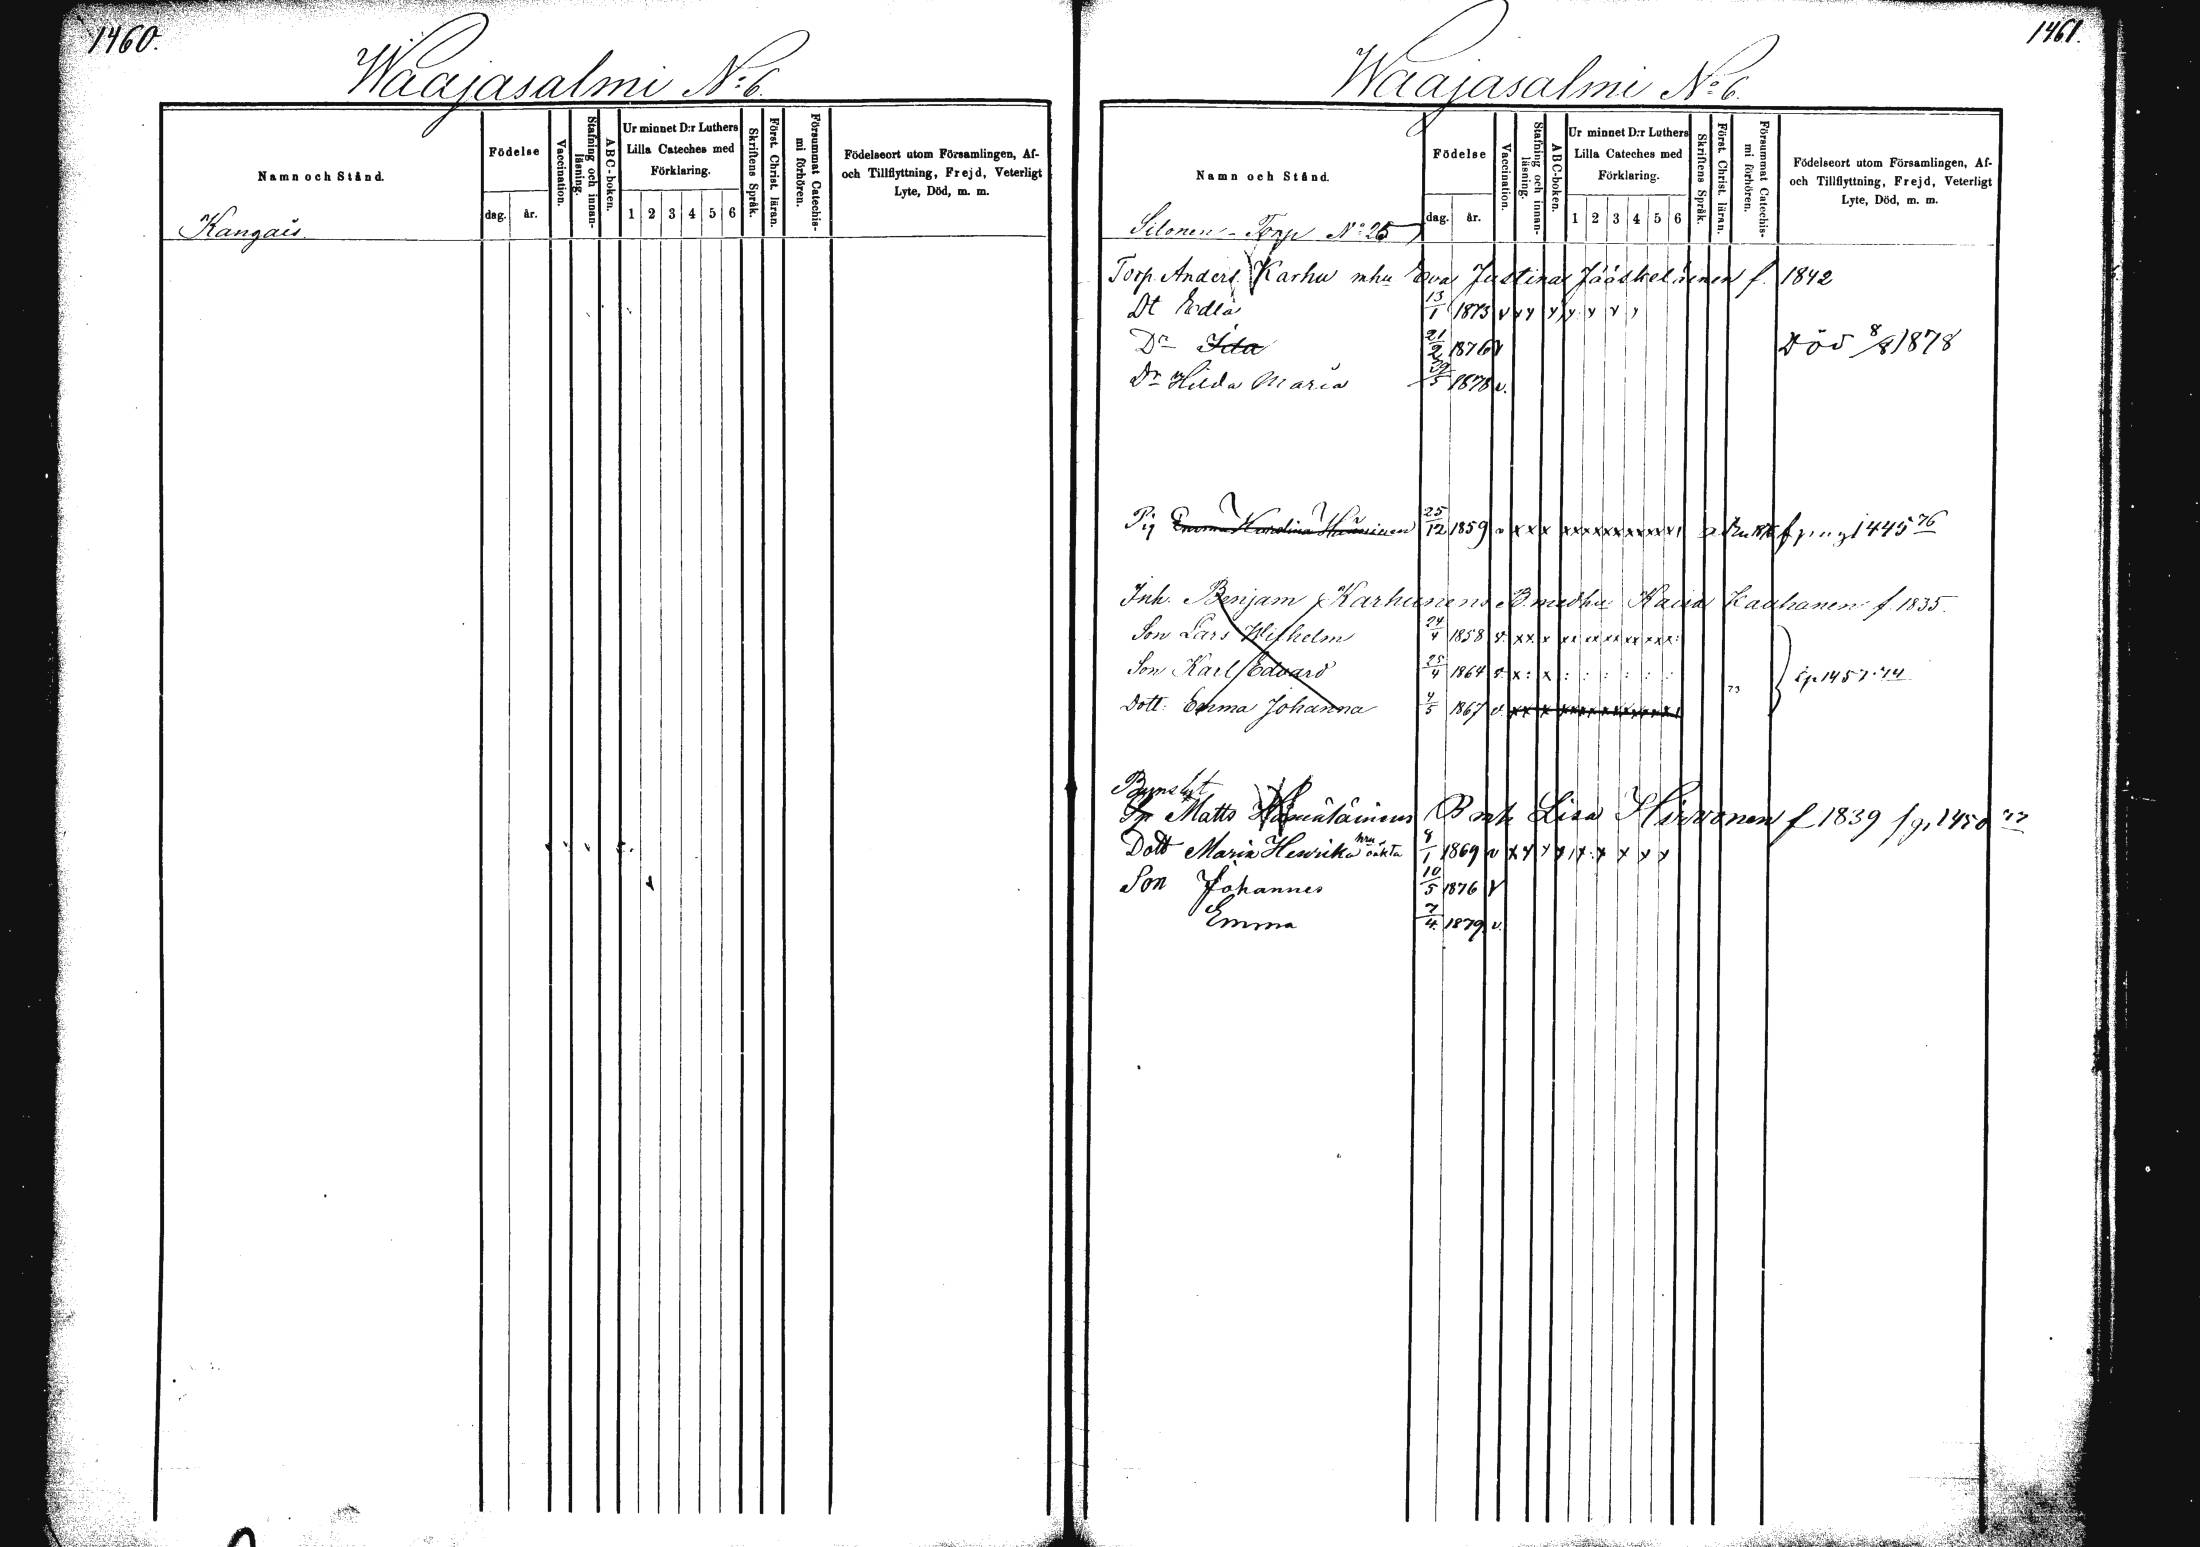 1460.
Waajasalmi No: 6.
Namn och Stånd.
Födelse
dag.
år.
Vaccination.
Stafning och innan-
läsning.
ABC-boken.
Ur minnet D:r Luthers
Lilla Cateches med
Förklaring.
1 2 3 4 5 6
Skriftens Språk.
Först. Christ. läran.
Försummat Catechis-
mi förhören.
Födelseort utom Församlingen, Af-
och Tillflyttning, Frejd, Veterligt
Lyte, Död, m. m.
Kangais.
1461.
Waajasalmi No: 6.
Namn och Stånd.
Födelse
dag.
år.
Vaccination.
Stafning och innan-
läsning.
ABC-boken.
Ur minnet D:r Luthers
Lilla Cateches med
Förklaring.
1 2 3 4 5 6
Skriftens Språk.
Först. Christ. läran.
Försummat Catechis-
mi förhören.
Födelseort utom Församlingen, Af-
och Tillflyttning, Frejd, Veterligt
Lyte, Död, m. m.
Silonen - Torp No: 25
Torp. Anders Karhu mhu Eva Justina Jääskeläinen f. 1842
Dt Edla 13/1 1873 v x y y y y y y
Dr Ida 21/2 1876 v Död 8/8 1878
Dr Hilda Maria 29/5 1878 v.
Pig Emma Karolina 25/12 1859 v x x x x x x x x x x x x x 1445 76
Inh. Benjam Karhunens B. medhu Kaisa Kauhanen f. 1835.
Son Lars Wilhelm 24/4 1858 v. xx x xx xx xx xx xx:
Son Karl Edvard 25/4 1864 v. x: x : : : : : : 73 ip. 1457. 74
Dott: Emma Johanna 4/5 1867 v. x x x x x x x x x x x x
Bynshyt
Matts Hämäläinens B mh Lisa Hirvonen f 1839 fg. 1450 77
Dott Maria Henrika hru oäkta 8/1 1869 v x y y y x x x x x
Son Johannes 10/5 1876 v
Emma 7/4 1879 v.